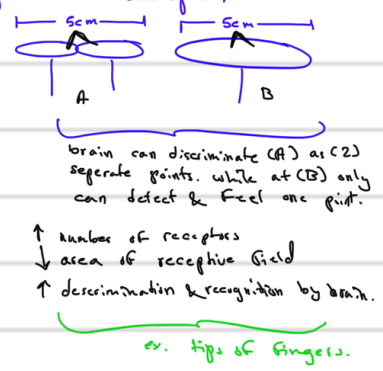 5cm 5cm
A B
brain can discriminate (A) as (2)
seperate points. while at (B) only
can detect & Feel one point.
↑ number of receptors
↓ area of receptive field
↑ descrimination & recognition by brain.
ex. tips of fingers.